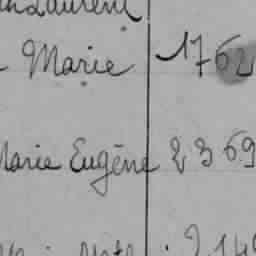 Laurent
Marie 1762
Marie Eugène 2369